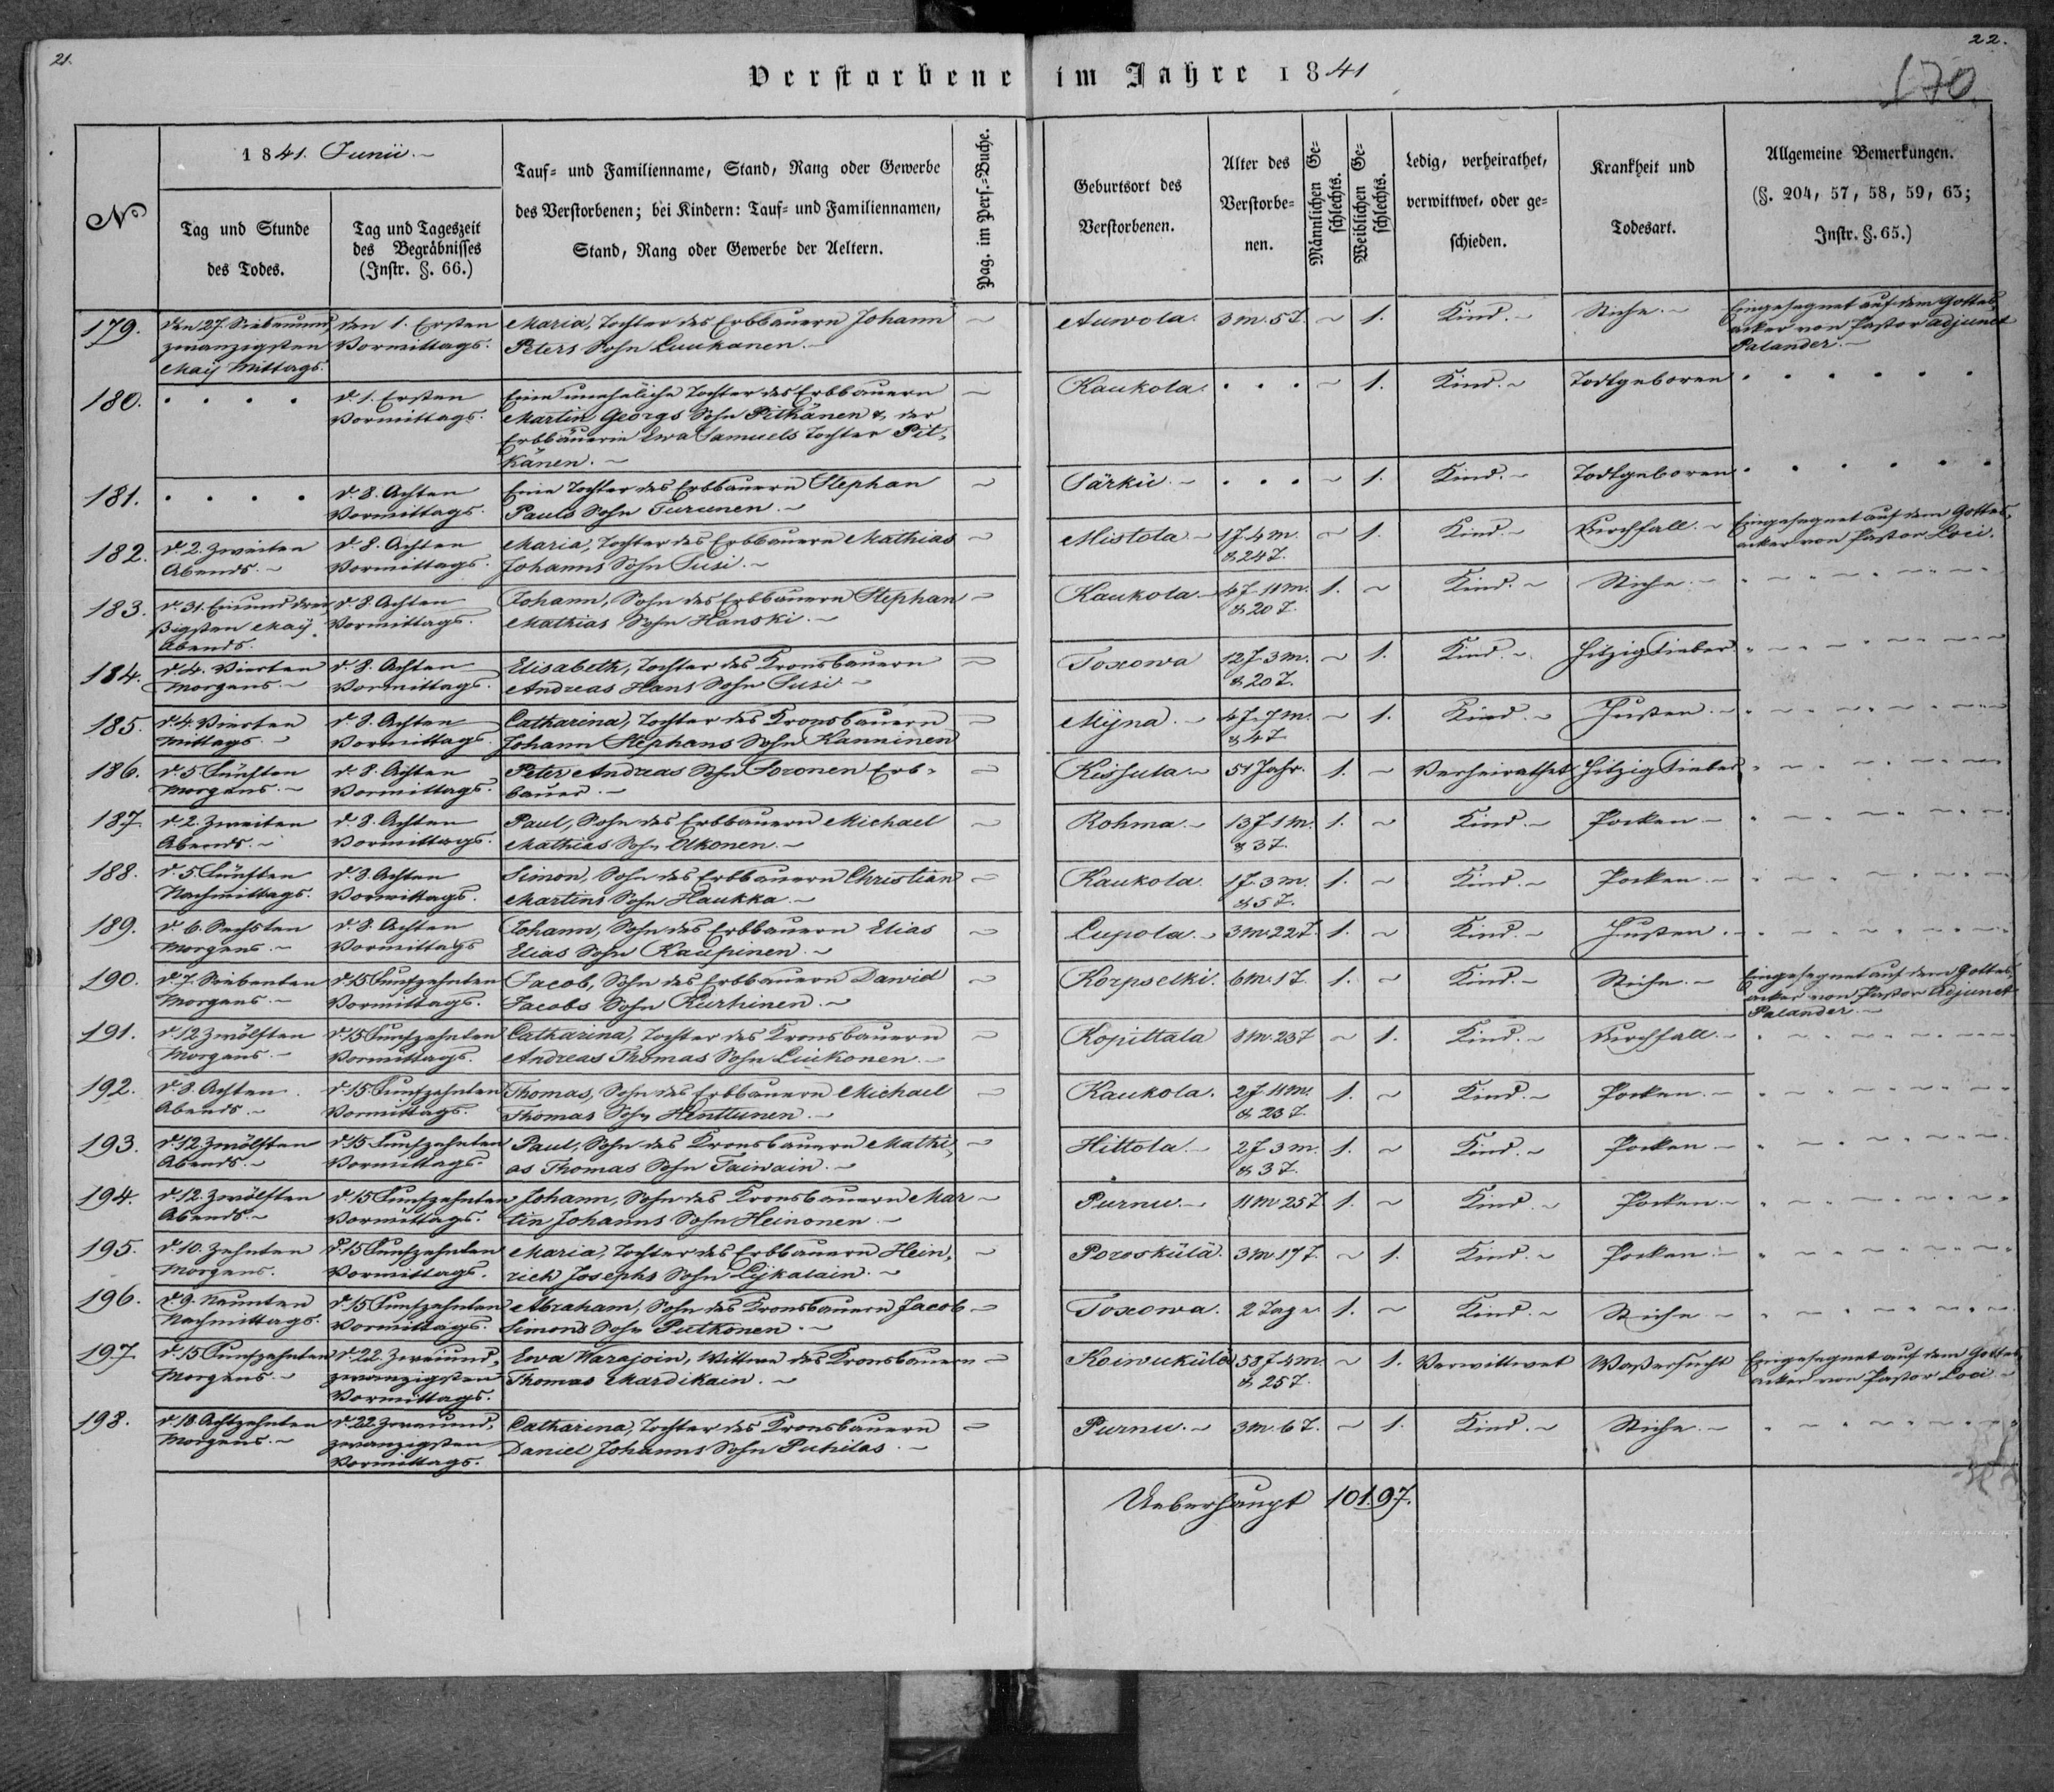 21.
22.
170
Verstorbene im Jahre 1841
No
1841. Junii.
Tag und Stunde des Todes.
Tag und Tageszeit des Begräbnisses (Instr. §. 66.)
Tauf- und Familienname, Stand, Rang oder Gewerbe
des Verstorbenen; bei Kindern: Tauf- und Familiennamen,
Stand, Rang oder Gewerbe der Aeltern.
Pag. im Pers.-Buche.
Geburtsort des Verstorbenen.
Alter des Verstorbe-nen.
Männlichen Ge-schlechts.
Weiblichen Ge-schlechts.
Ledig, verheirathet, verwittwet, oder ge-schieden.
Krankheit und Todesart.
Allgemeine Bemerkungen.
(§. 204, 57, 58, 59, 63;
Instr. §. 65.)
179. den 27. Siebenund den 1. Ersten Maria, Tochter des Erbbauern Johann ~ Auwola. 3 M. 5 T. ~ 1. Kind. Stiche. Eingesegnet auf dem Gottes-
zwanzigsten Vormittags. Peters Sohn Luukanen. acker von Pastor Adjunct
Maij Mittags. Palander.
180. . . . . d. 1. Ersten Eine uneheliche Tochter des Erbbauern ~ Kaukola. . . . ~ 1. Kind. Todtgeboren . . . . . .
Vormittags. Martin Georgs Sohn Pitkänen & der
Erbbäuerin Ewa Samuels Tochter Pit-
känen.
181. . . . . d. 8. Achten Eine Tochter des Erbbauern Stephan ~ Särkü. . . . ~ 1. Kind. Todtgeboren . . . . . .
Vormittags. Pauls Sohn Turunen.
182. d. 2. Zweiten d. 8. Achten Maria, Tochter des Erbbauern Mathias ~ Mistola 1 J. 4 M. ~ 1. Kind. Durchfall. Eingesegnet auf dem Gottes-
Abends. Vormittags. Johanns Sohn Susi. & 24 T. acker von Pastor Loci.
183. d. 31. Einund drei d. 8. Achten Johann, Sohn des Erbbauern Stephan ~ Kaukola 4 J. 11 M. 1. ~ Kind. Stiche.
ßigsten Maij Vormittags. Mathias Sohn Hanski. & 20 T.
Abends.
184. d. 4. Vierten d. 8. Achten Elisabeth, Tochter des Kronsbauern ~ Toxowa 12 J. 3 M. ~ 1. Kind. Hitzig Fieber
Morgens. Vormittags. Andreas Hans Sohn Susi & 20 T.
185. d. 4. Vierten d. 8. Achten Catharina, Tochter des Kronsbauern ~ Mijna. 4 J. 7 M. ~ 1. Kind. Husten.
Mittags. Vormittags. Johann Stephans Sohn Kanninen & 4 T.
186. d. 5. Fünften d. 8. Achten Peter Andreas Sohn Soronen Erb- ~ Kissula. 51 Jahr. 1. ~ Verheirathet Hitzig Fieber
Morgens. Vormittags. bauer.
187. d. 2. Zweiten d. 8. Achten Paul, Sohn des Erbbauern Michael ~ Rohma. 13 J. 1 M. 1. ~ Kind. Pocken
Abends. Vormittags. Mathias Sohn Olkonen. & 3 T.
188. d. 5. Fünften d. 8. Achten Simon, Sohn des Erbbauern Christian ~ Kaukola. 1 J. 3 M. 1. ~ Kind. Pocken
Nachmittags. Vormittags. Martins Sohn Haukka. & 5 T.
189. d. 6. Sechsten d. 8. Achten Johann, Sohn des Erbbauern Elias ~ Lupola. 3 M. 22 T. 1. ~ Kind. Husten.
Morgens. Vormittags Elias Sohn Kaupinen.
190. d. 7. Siebenten d. 15 Funfzehnten Jacob, Sohn des Erbbauern Dawid ~ Korpselki. 6 M. 1 T. 1. ~ Kind. Stiche. Eingesegnet auf dem Gottes-
Morgens. Vormittags. Jacobs Sohn Kurhinen. acker von Pastor Adjunct
Palander.
191. d. 12 Zwölften d. 15 Funfzehnten Catharina, Tochter des Kronsbauern ~ Kopittala 8 M. 23 T ~ 1. Kind. Durchfall.
Morgens. Vormittags. Andreas Thomas Sohn Luikonen.
192. d. 8. Achten d. 15 Funfzehnten Thomas, Sohn des Erbbauern Michael ~ Kaukola. 2 J. 11 M. 1. ~ Kind. Pocken.
Abends. Vormittags. Thomas Sohn Henttunen. & 23 T.
193. d. 12 Zwölften d. 15 Funfzehnten Paul, Sohn des Kronsbauern Mathi- ~ Hittola. 2 J 3 M. 1. ~ Kind. Pocken
Abends. Vormittags. as Thomas Sohn Taiwain. & 3 T.
194. d. 12. Zwölften d. 15 Funfzehnten Johann, Sohn des Kronsbauern Mar ~ Purnu. 11 M 25 T 1. ~ Kind. Pocken
Abends. Vormittags. tin Johanns Sohn Heinonen
195. d. 10. Zehnten d. 15 Funfzehnten Maria, Tochter des Erbbauern Hein- ~ Poroskülä. 3 M 17 T. ~ 1. Kind. Pocken
Morgens. Vormittags. rich Josephs Sohn Lijkalain.
196. d. 9. Neunten d. 15 Funfzehnten Abraham, Sohn des Kronsbauern Jacob ~ Toxowa. 2 Tage. 1. ~ Kind. Stiche
Nachmittags. Vormittags. Simons Sohn Putkonen.
197. d. 15 Funfzehnten d. 22. Zweiund- Ewa Warajoin, Wittwe des Kronsbauern ~ Koiwukülä 58 J. 4 M. ~ 1. Verwittwet Waßersucht Eingesegnet auf dem Gottes-
Morgens. zwanzigsten Thomas Mardikain. & 25 T. acker von Pastor Loci
Vormittags.
198. d. 18. Achtzehnten d. 22 Zweiund- Catharina, Tochter des Kronsbauern ~ Purnu. 3 M. 6 T. ~ 1. Kind. Stiche.
Morgens. zwanzigsten Daniel Johanns Sohn Puhilas.
Vormittags.
Ueberhaupt 101. 97.